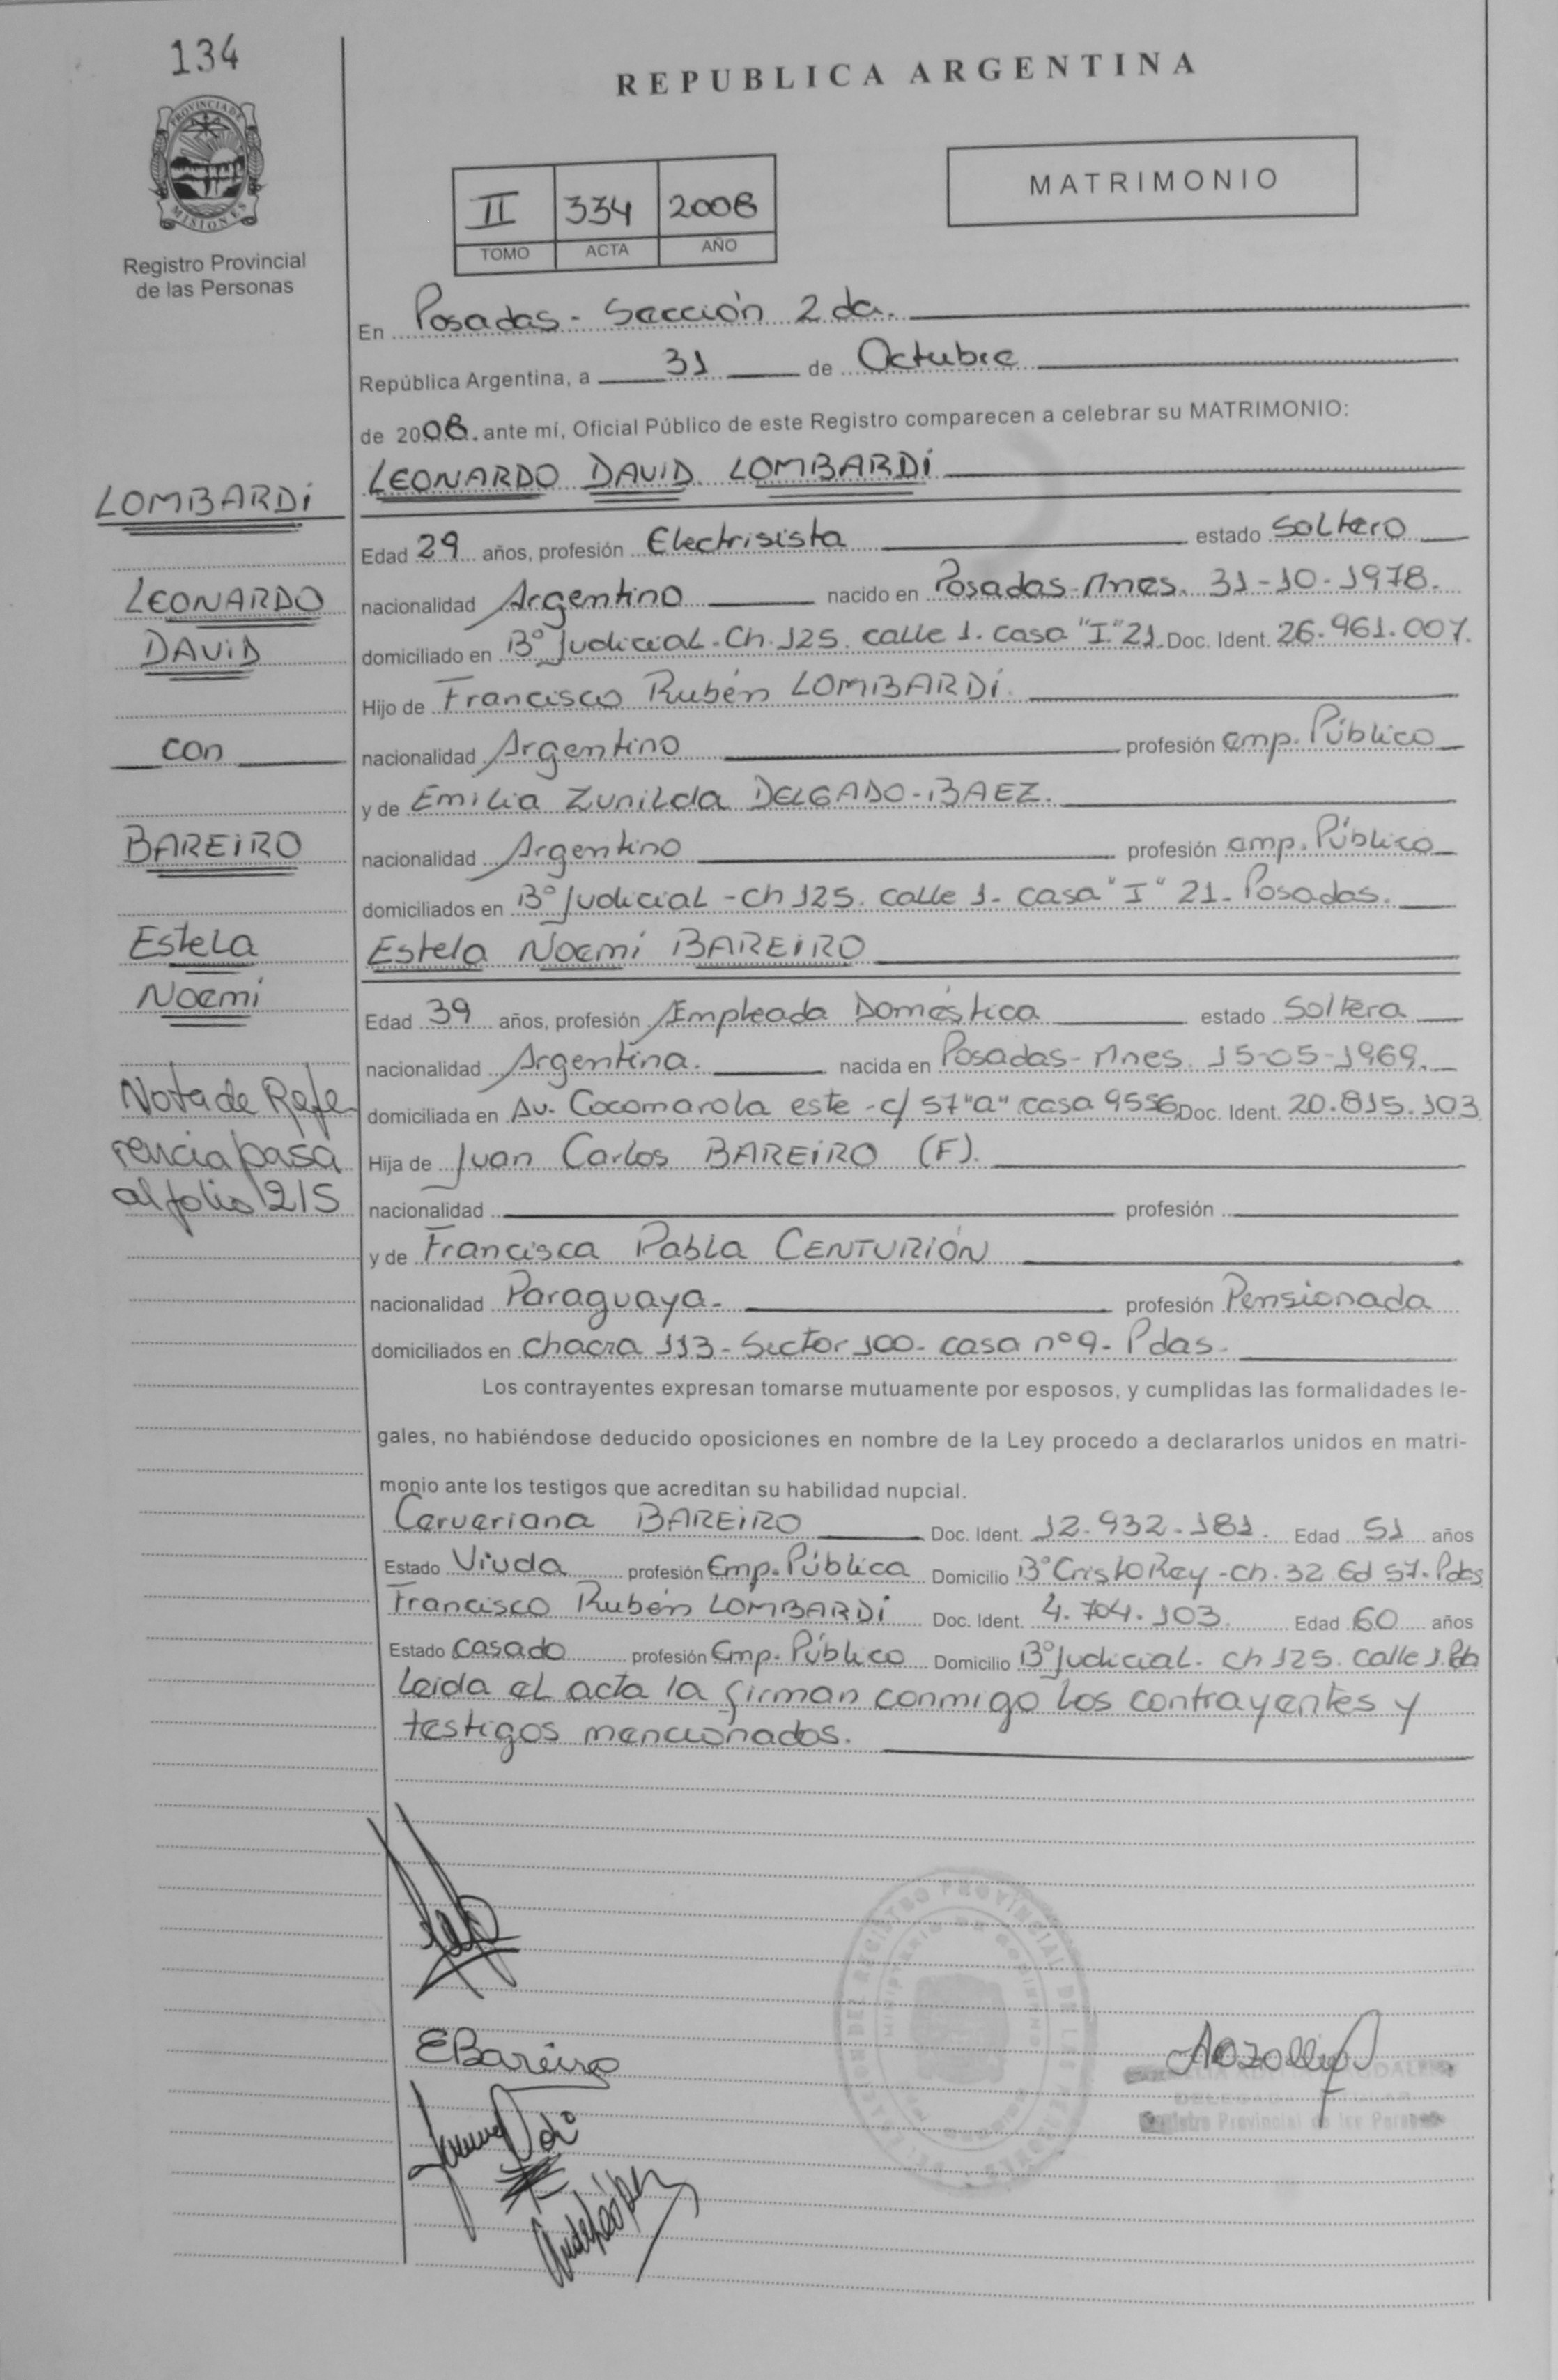 134
REPUBLICA ARGENTINA
PROVINCIA DE
MISIONES
Registro Provincial
de las Personas
II 334 2008
TOMO ACTA AÑO
MATRIMONIO
En Posadas - Sección 2da.
República Argentina, a 31 de Octubre
de 2008. ante mí, Oficial Público de este Registro comparecen a celebrar su MATRIMONIO:
LEONARDO DAVID LOMBARDI
LOMBARDI
Edad 29 años, profesión Electrisista estado Soltero
LEONARDO
nacionalidad Argentino nacido en Posadas-Mnes. 31-10-1978.
DAVID
domiciliado en B° Judicial - Ch. 125. calle 1. casa "I" 21. Doc. Ident. 26.961.007.
Hijo de Francisco Rubén LOMBARDI.
con
nacionalidad Argentino profesión emp. Público
y de Emilia Zunilda DELGADO-BAEZ.
BAREIRO
nacionalidad Argentino profesión emp. Público
domiciliados en B° Judicial - Ch 125. calle 1. casa "I" 21- Posadas.
Estela
Estela Noemi BAREIRO
Noemi
Edad 39 años, profesión Empleada Doméstica estado Soltera
nacionalidad Argentina. nacida en Posadas- Mnes. 15-05-1969.
Nota de Refe
domiciliada en Av. Cocomarola este - c/ 57 "a" casa 9556 Doc. Ident. 20.815.103
rencia pasa
Hija de Juan Carlos BAREIRO (F).
al folio 215
nacionalidad profesión
y de Francisca Pabla CENTURIÓN
nacionalidad Paraguaya. profesión Pensionada
domiciliados en chacra 113- Sector 100- casa n° 9- Pdas.
Los contrayentes expresan tomarse mutuamente por esposos, y cumplidas las formalidades le-
gales, no habiéndose deducido oposiciones en nombre de la Ley procedo a declararlos unidos en matri-
monio ante los testigos que acreditan su habilidad nupcial.
Cerveriana BAREIRO Doc. Ident. 12.932.181. Edad 51 años
Estado Viuda profesión Emp. Pública Domicilio B° Cristo Rey - Ch. 32 Ed 57- Pdas
Francisco Rubén LOMBARDI Doc. Ident. 4.704.103. Edad 60 años
Estado casado profesión Emp. Público Domicilio B° Judicial. Ch 125. calle 1.
Leida el acta la firman conmigo los contrayentes y
testigos mencionados.
EBareiro
Registro Provincial de las Personas